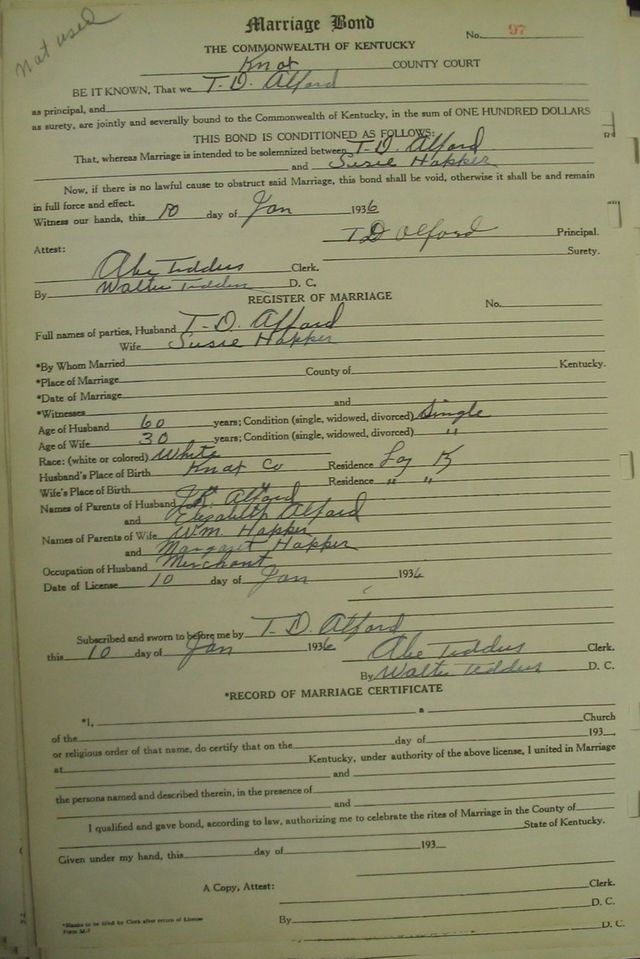 Not used
Marriage Bond
No. 97
THE COMMONWEALTH OF KENTUCKY
Knox COUNTY COURT
BE IT KNOWN, That we T. D. Alford
as principal, and
as surety, are jointly and severally bound to the Commonwealth of Kentucky, in the sum of ONE HUNDRED DOLLARS
THIS BOND IS CONDITIONED AS FOLLOWS:
That, whereas Marriage is intended to be solemnized between T-D. Alford
and Susie Hopper
Now, if there is no lawful cause to obstruct said Marriage, this bond shall be void, otherwise it shall be and remain
in full force and effect.
Witness our hands, this 10 day of Jan 1936
T D Alford Principal.
Attest: Surety.
Abe Clerk.
By Walter D. C.
REGISTER OF MARRIAGE
No.
Full names of parties, Husband T-D. Alford
Wife Susie Hopper
*By Whom Married
*Place of Marriage County of Kentucky.
*Date of Marriage
*Witnesses and
Age of Husband 60 years; Condition (single, widowed, divorced) Single
Age of Wife 30 years; Condition (single, widowed, divorced) "
Race: (white or colored) White
Husband's Place of Birth Knox Co Residence Ky
Wife's Place of Birth " " Residence " "
Names of Parents of Husband J.R. Alford
and Elizabeth Alford
Names of Parents of Wife Wm. Hopper
and Margaret Hopper
Occupation of Husband Merchant
Date of License 10 day of Jan 1936
Subscribed and sworn to before me by T-D. Alford
this 10 day of Jan 1936
Abe Clerk.
By Walter D. C.
*RECORD OF MARRIAGE CERTIFICATE
*I, a
of the Church
or religious order of that name, do certify that on the day of 193 ,
at Kentucky, under authority of the above license, I united in Marriage
and
the persons named and described therein, in the presence of
and
I qualified and gave bond, according to law, authorizing me to celebrate the rites of Marriage in the County of
State of Kentucky.
Given under my hand, this day of 193
A Copy, Attest: Clerk.
D. C.
*Blanks to be filled by Clerk after return of License
Form M-7
By D. C.